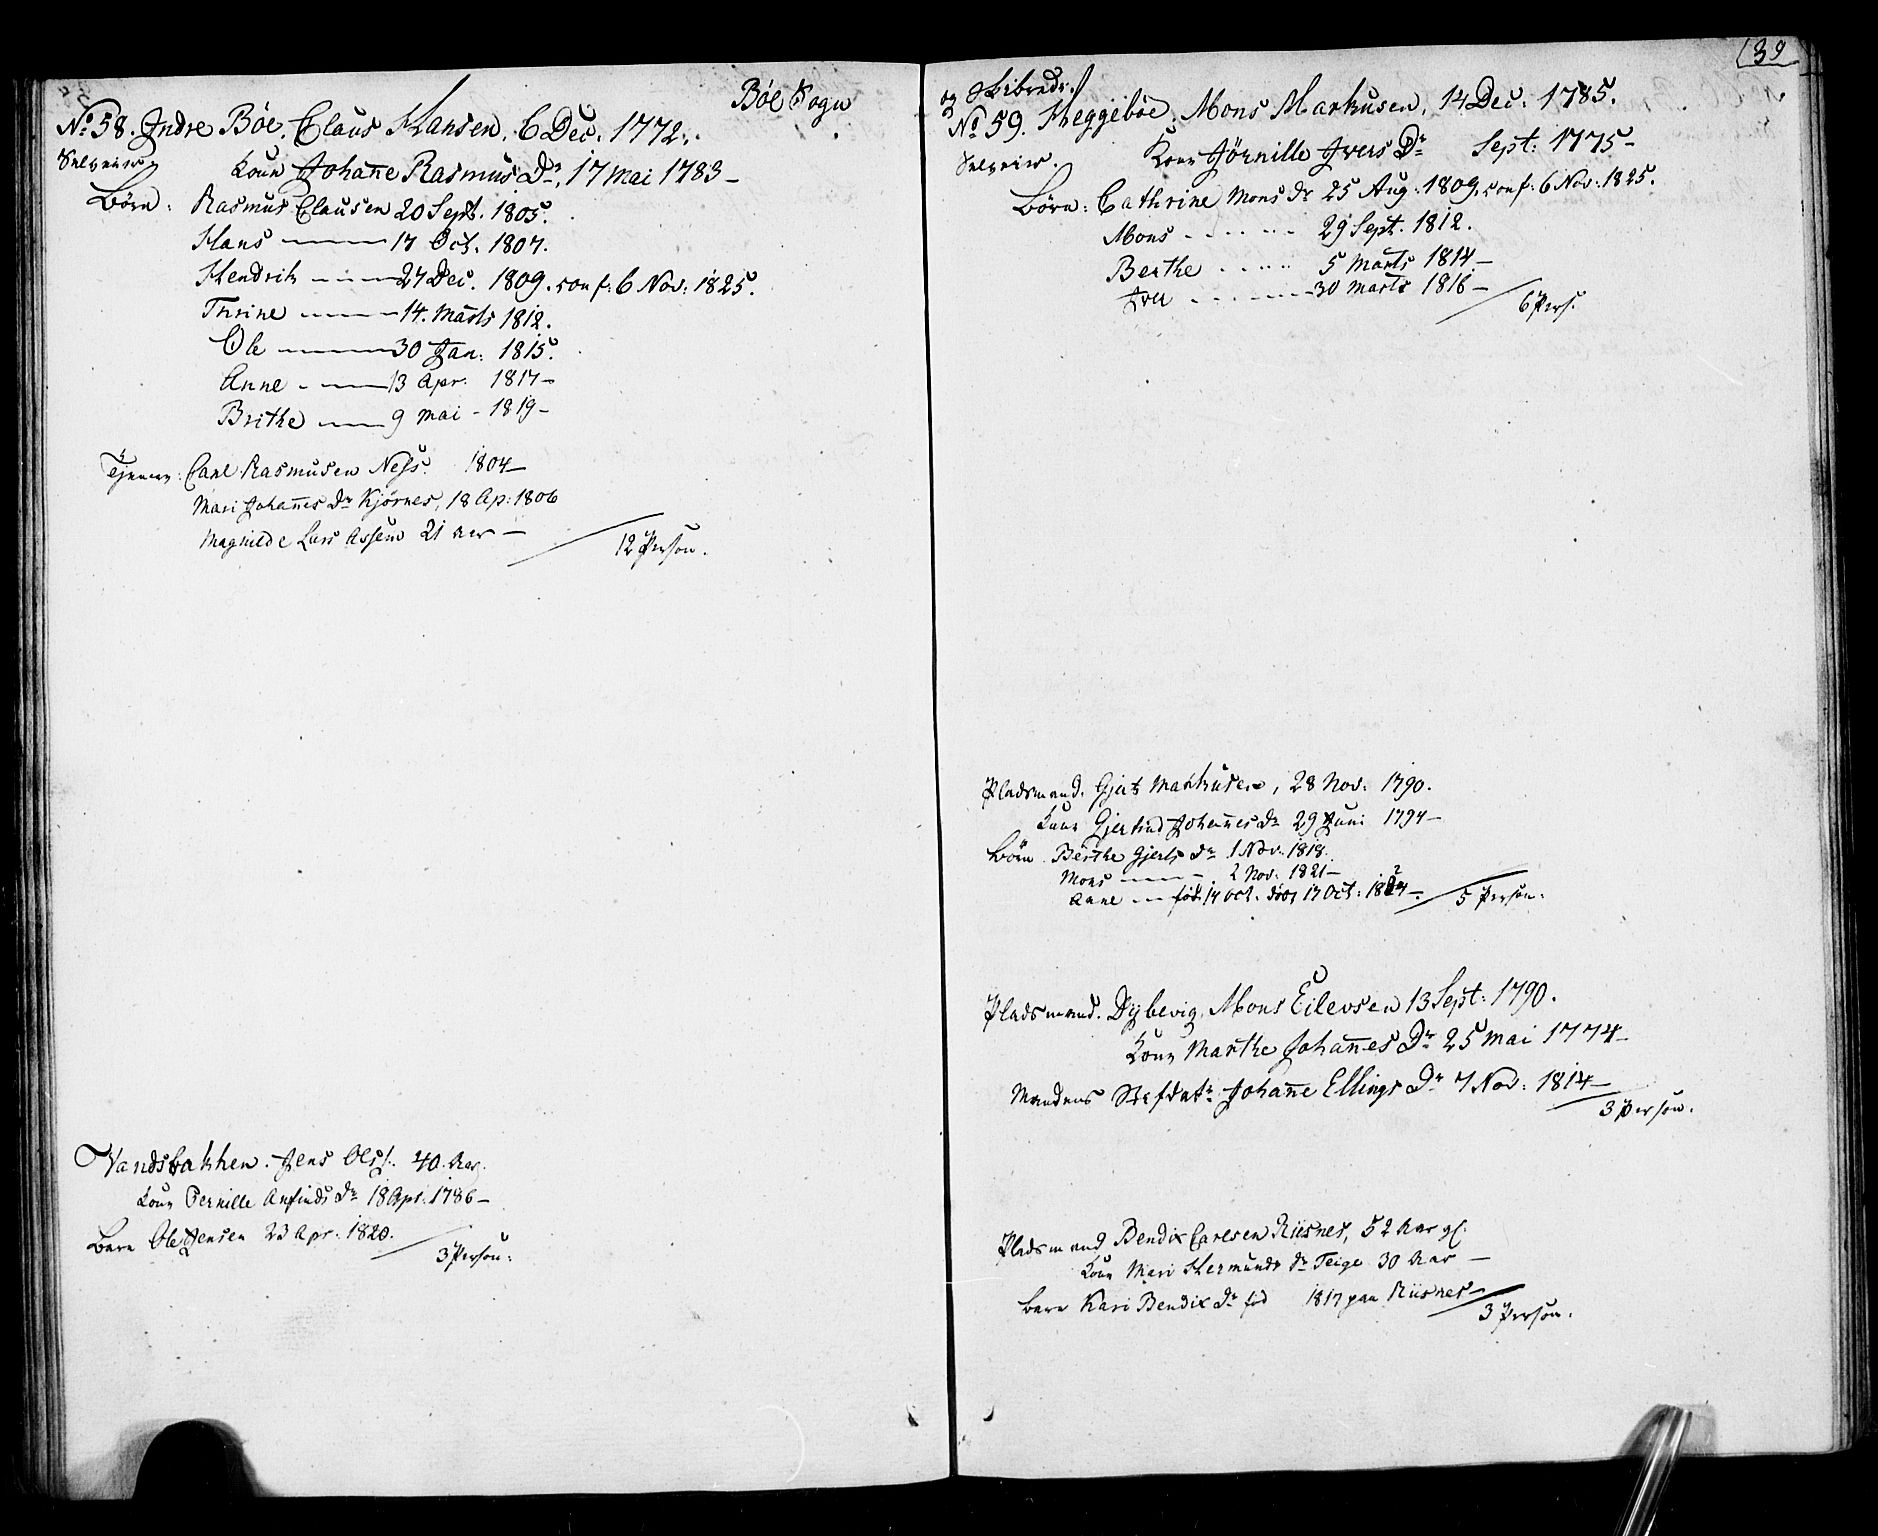 Bøe Sogn
No 58. Indre Bøe. Claus Hansen, 6 Dec. 1772.
Selveier
Kone Johanne Rasmus Dr, 17 Mai 1783 —
Børn: Rasmus Clausen 20 Sept. 1805.
Hans — 17 Oct. 1807.
Hendrik — 27 Dec. 1809. conf: 6 Nov: 1825.
Thrine — 14. Marts 1812.
Ole — 30 Jan: 1815.
Anne — 13 Apr: 1817 —
Brithe — 9 Mai - 1819 —
Tjenere: Carl Rasmusen Ness. 1804 —
Mari Johannes Dr Kjørnes, 18 Ap: 1806
Magnilde Lars Assem 21 Aar —
12 Person.
Vandsbakken. Jens Ols. 40. Aar.
Kone Pernille Anfinds Dr 18 Apr. 1786 —
Barn Ole Jensen 23 Apr. 1820.
3 Person:
39
3 Skibredr.
No 59. Heggebøe. Mons Markusen, 14 Dec. 1785.
Selveier.
Kone Jørnille Ivers Dr Sept: 1775 —
Børn: Cathrine Mons Dr 25 Aug. 1809. conf: 6 Nov: 1825.
Mons 29 Sept. 1812.
Berthe 5 Marts 1814 —
Iver 30 Marts 1816 —
6 Pers.
Pladsmand. Gjert Markusen, 28 Nov. 1790.
Kone Gjertrud Johannes Dr 29 Juni 1794 —
Børn Berthe Gjerts Dr 1 Nov. 1818.
Mons — 2 Nov. 1821 —
Anne — fød 14 Oct. døbt 17 Oct: 1824 —
5 Person:
Pladsmand. Dybevig, Mons Eilevsen 13 Sept: 1790.
Kone Marthe Johannes Dr 25 Mai 1774 —
Mandens Stefdatr. Johanne Ellings Dr 7 Nov: 1814 —
3 Person.
Pladsmand Bendix Carlsen Riisnes, 52 Aar gl.
Kone Mari Hermunds Dr Teige 30 Aar —
Barn Kari Bendix Dr fød 1817 paa Riisnes —
3 Person: